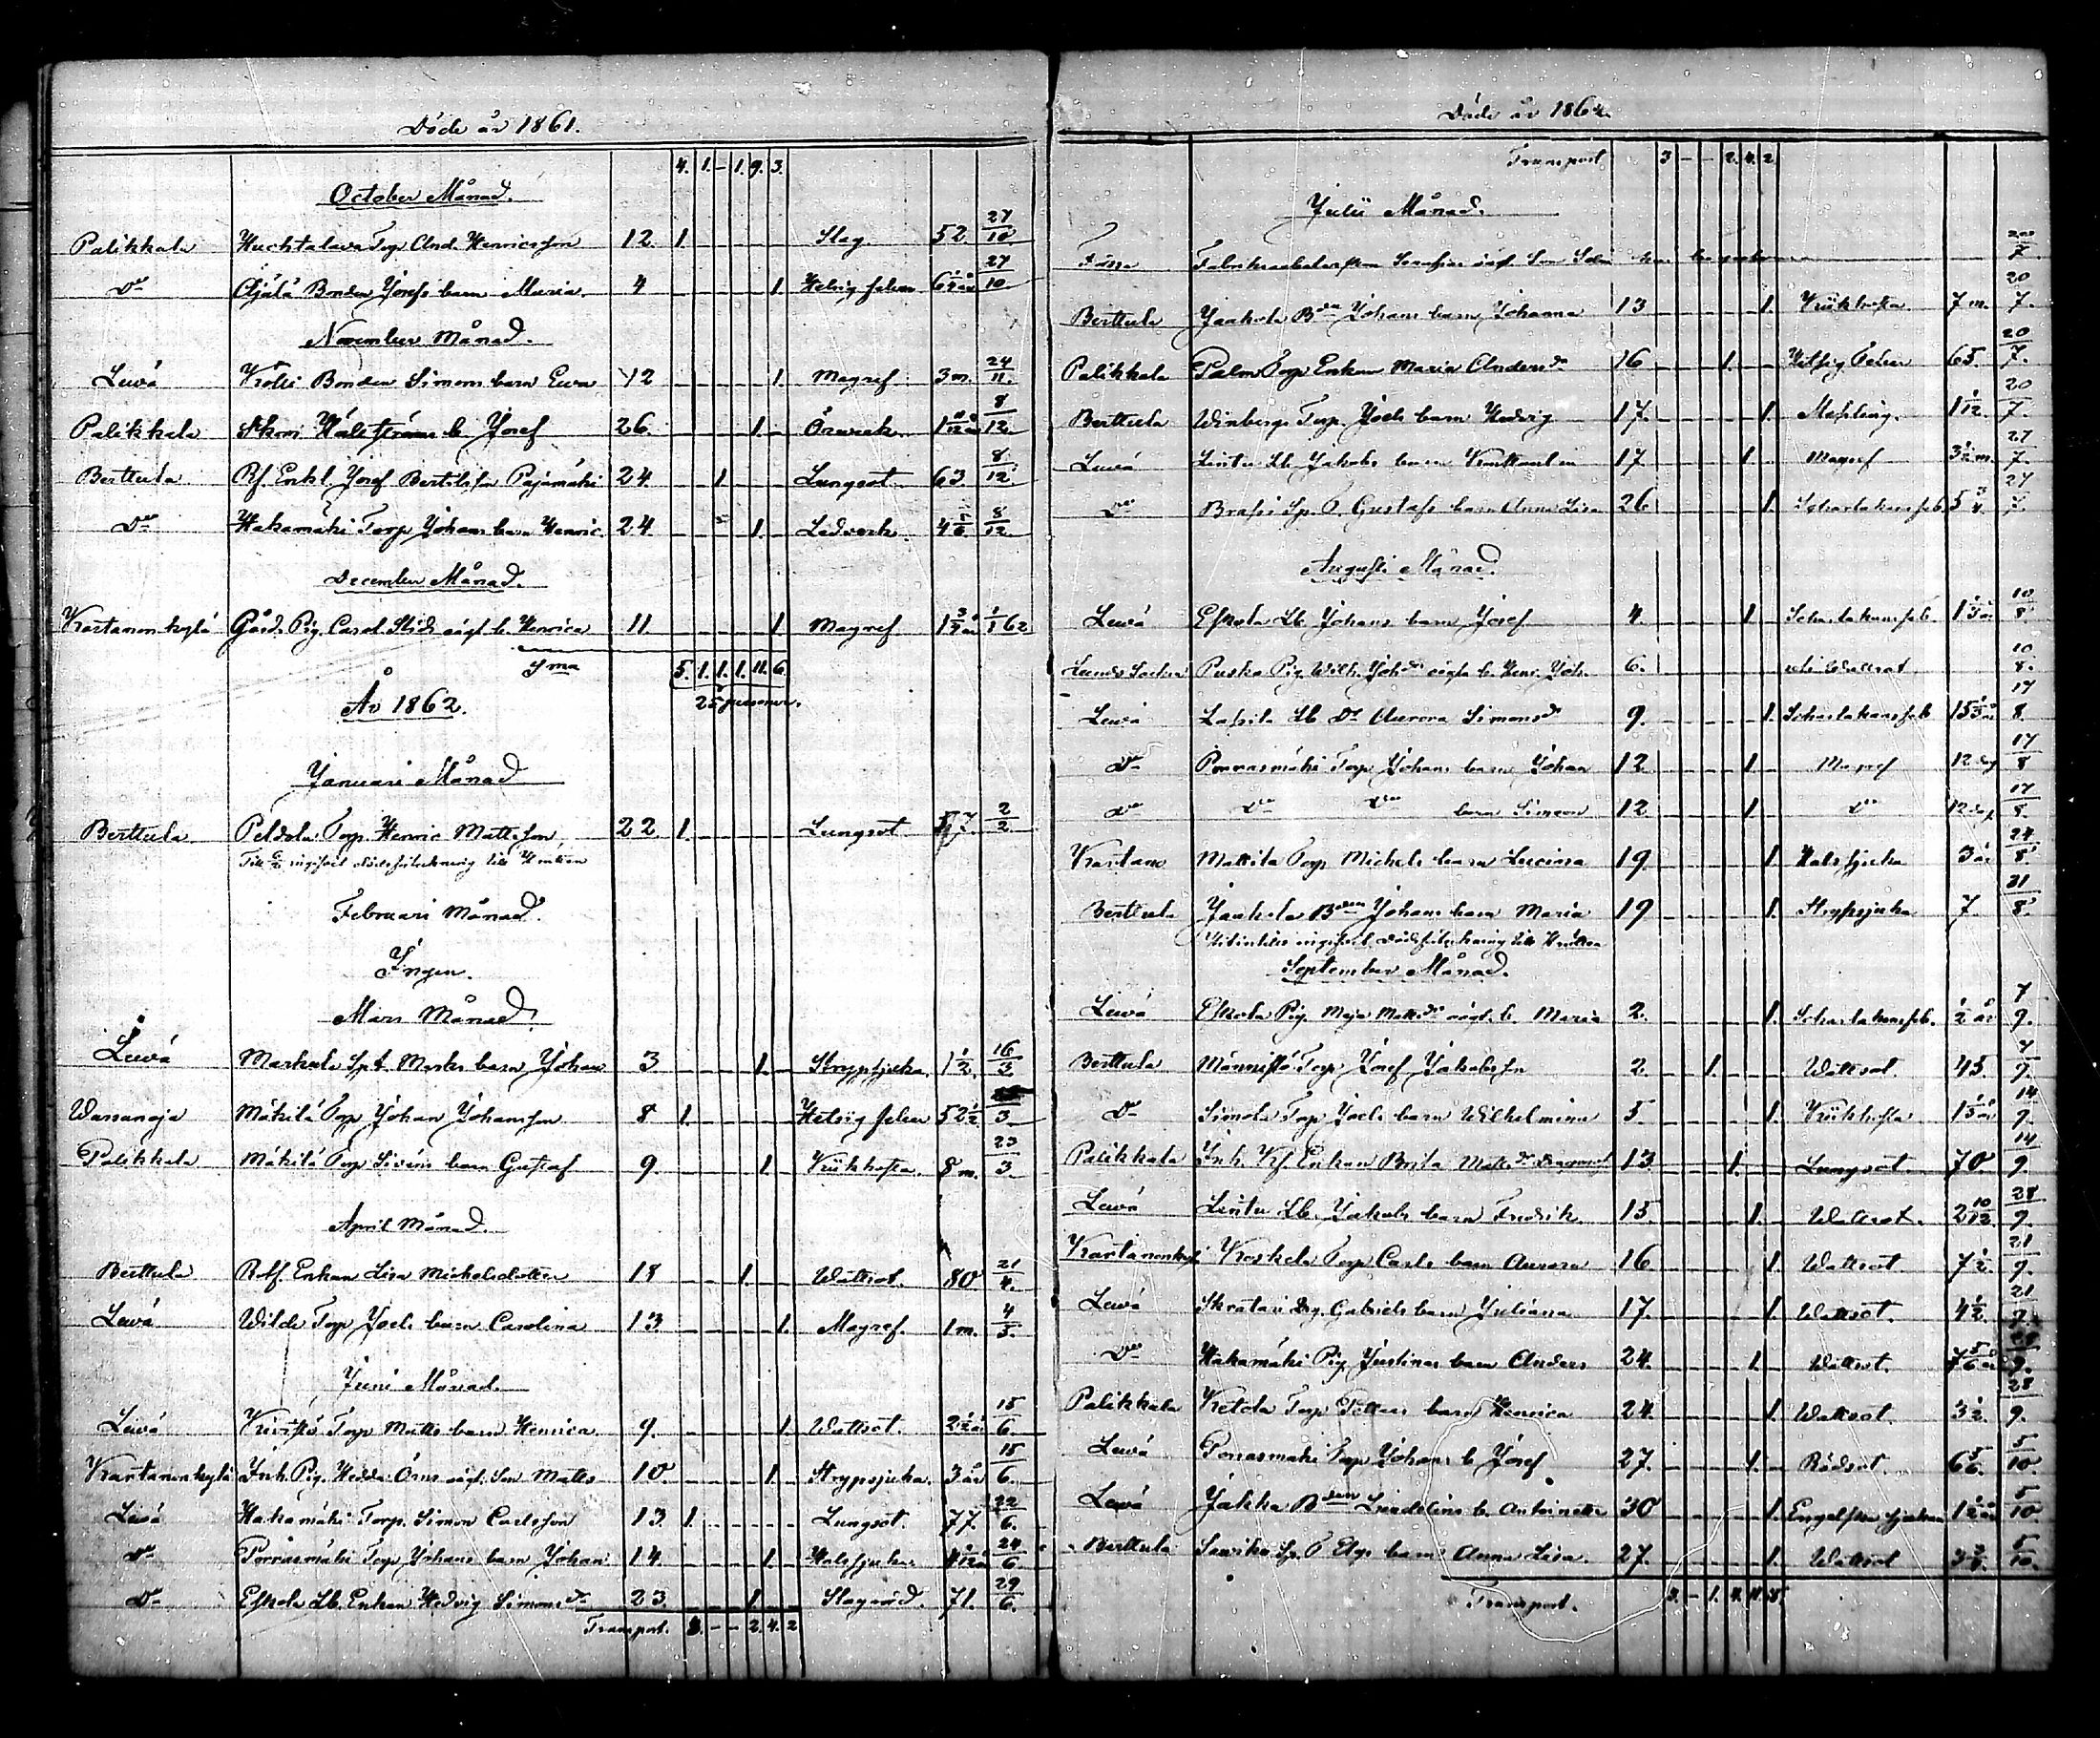 Döde år 1861.
4. 1. - 1. 9. 3.
October Månad.
Palikkala Huchtalawa Torp. And. Henricsson 12. 1. Slag. 52 27/10
Do Äjälä Bonden Josefs barn Maria. 4 1. Hetsig feber 6 1/2 år 27/10
November Månad.
Lewä Krölli Bonden Simons barn Ewa 12 1. Magref 3 m. 24/11.
Palikkala Skom Hälströms b. Josef 26. 1. 8/12.
Berttula Rf. Enkl. Josef Bertilsson Pajamäki 24. 1 Lungsot 63 8/12
Do Hakamäki Torp Johans barn Henric. 24. 1. Ledverk 8/12
December Månad.
Kartanonkylä Gård. Pig. Carol. oägt. b. Henrica 11. 1. Magref 1/1 62
Sma 5. 1. 1. 1. 11. 6.
År 1862. 25 personer.
Januari Månad
Berttula Peldola Torp. Henric Mattsson 22 1. Lungsot 57. 2/2.
ingifvet dödsförteckning till
Februari Månad.
Ingen.
Mars Månad.
Lewä Markula Spt. barn Johan 3 1. Strypsjuka. 1 1/2. 16/3
Wassanoja Mäkilä Torp Johan Johansson 8 1. Hetsig feber 52 1/2 /3
Palikkala Mäkilä Torp barn Gustaf 9. 1. Kikhosta 8 m. 23/3.
April Månad.
Berttula Enkan Lisa Michelsdotter 18 1. Wattsot. 80 21/4.
Lewä Wilde Torp Joels barn Carolina 13 1. Magref. 1 m. 4/5.
Juni Månad.
Lewä Torp Matts barn Henrica. 9. 1. Wattsot. 2 1/2 år 15/6.
Kartanonkylä Inh. Pig. Hedda oägt. Son Matts 10. 1. Strypsjuka. 3 år 15/6.
Lewä Hakamäki Torp. Simon Carlsson 13. 1. Lungsot. 77. 22/6.
Do Porrasmäki Torp Johans barn Johan 14. 1. Halssjuka 24/6
Do Eskola Lb. Enkan Hedvig Simonsdr 23. 1. 71. 29/6.
Transport. 3. - - 2. 4. 2
Döde år 1862.
Transport 3 - - 2. 4. 2
Julii Månad.
oägt Son 20/7.
Berttula Jaakola Bdn Johans barn Johanna 13 1. Kikhosta 7 m. 20/7.
Palikkala Palm Torp Enkan Maria Andersdr 16 1. Hetsig Feber 65. 20/7.
Berttula Winbergs Torp. Joels barn Hedvig 17. 1. Messling. 1 1/12. 20/7.
Lewä Lintu Lb. Jakobs barn 17 1. Magref 3 1/2 m. 27/7.
Do Brassi Sp. T. Gustafs barn Anna Lisa 26 1. Scharlakansfeb. 27/7.
Augusti Månad.
Lewä Eskola Lb. Johans barn Josef 4. 1. Scharlakansfeb. 10/8
Puska Pig. Wilh. Johdr oägta b. Henr. Joh. 6. Wattsot 10/8.
Lewä Lassila Lb Dr Aurora Simonsdr 9. 1. Scharlakansfeb 17/8
Do Porrasmäki Torp Johans barn Johan 12 1. Magref 12 dag 17/8
Do Do Do barn Simeon 12 1. Do 12 dag 17/8.
Kartano Mattila Torp Michels barn Lucina 19. 1. Halssjuka 3 år 24/8
Berttula Jaakola Bden Johans barn Maria 19 1. Strypsjuka 7. 31/8.
ingifvet Dödsförteckning till
September Månad.
Lewä Eskola Pig. Maja Mattsdr oägt. b. Maria 2. 1. Scharlakansfeb. 1/2 år 7/9.
Berttula Männistö Torp Josef Jakobsson 2. 1. Wattsot. 45. 7/9.
Do Simola Torp Joels barn Wilhelmina 5. 1. Kikhosta 14/9.
Palikkala Inh. Enkan Brita Mattsdr 13. 1. Lungsot. 70 14/9.
Lewä Lintu Lb. Jakobs barn Fredrik 15. 1. Wattsot. 2 10/12. /9.
Kartanonkylä Koskela Torp Carls barn Aurora 16 1. Wattsot. 7 1/2. 21/9.
Lewä Skratari Drg. Gabriels barn Juliana 17. 1. Wattsot. 4 1/2. 21/9.
Do Hakamäki Pig. Justinas barn Anders 24. 1. Wattsot. /9.
Palikkala Ketola Torp Petters barn Henrica 24. 1. Wattsot. 3 1/2. 28/9.
Lewä Porrasmäki Torp Johans b Josef 27. 1. Rödsot. 5/10.
Lewä Jakka Bden b. Antoinette 30 1. Engelska sjukan 1 1/2 år 5/10
Berttula Sp. T. Elgs barn Anna Lisa. 27. 1. Wattsot 5/10.
Transport. 3. - 1. 4. 11. 8.